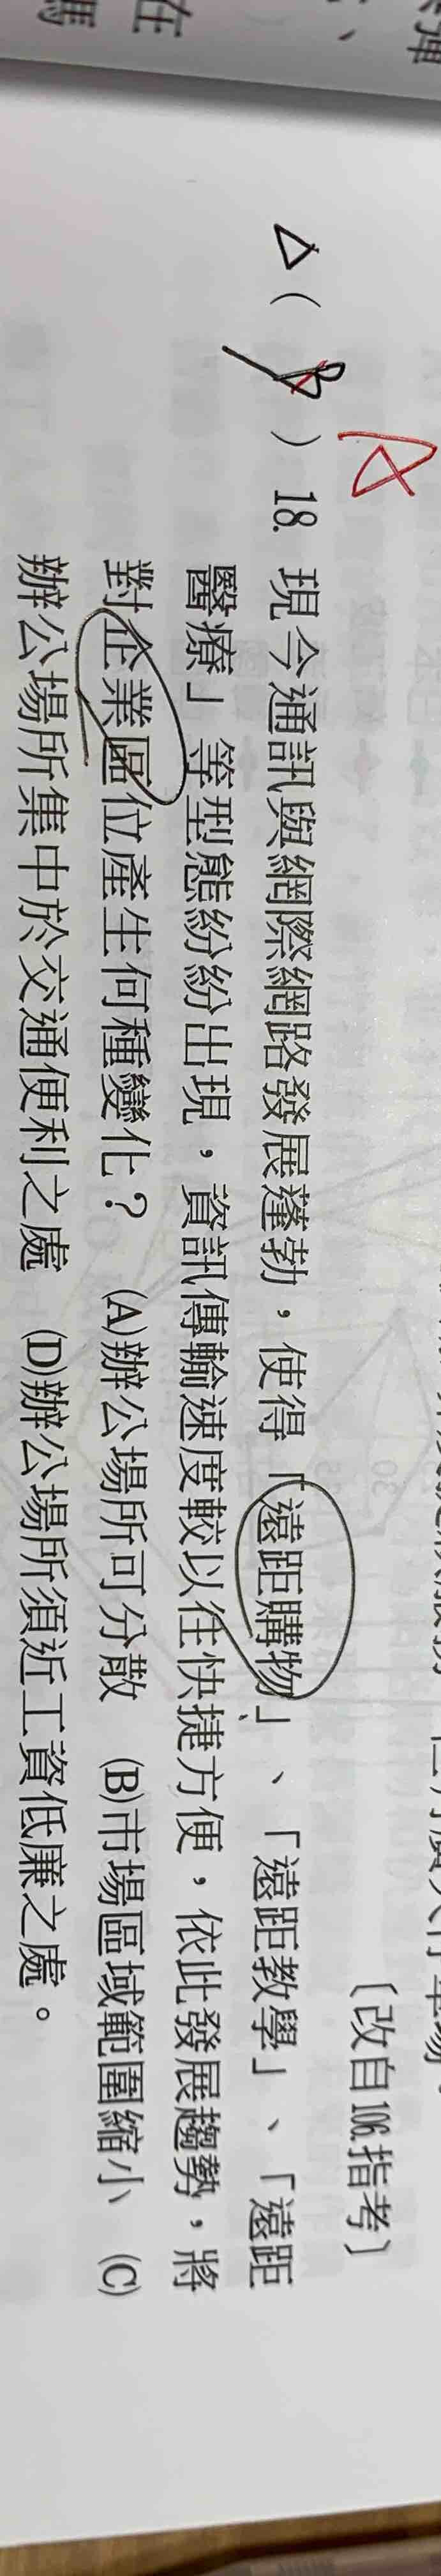 〔改自106.指考〕
A
△( B ) 18. 現今通訊與網際網路發展蓬勃，使得「遠距購物」、「遠距教學」、「遠距
醫療」等型態紛紛出現，資訊傳輸速度較以往快捷方便，依此發展趨勢，將
對企業區位產生何種變化？ (A)辦公場所可分散 (B)市場區域範圍縮小 (C)
辦公場所集中於交通便利之處 (D)辦公場所須近工資低廉之處。
在